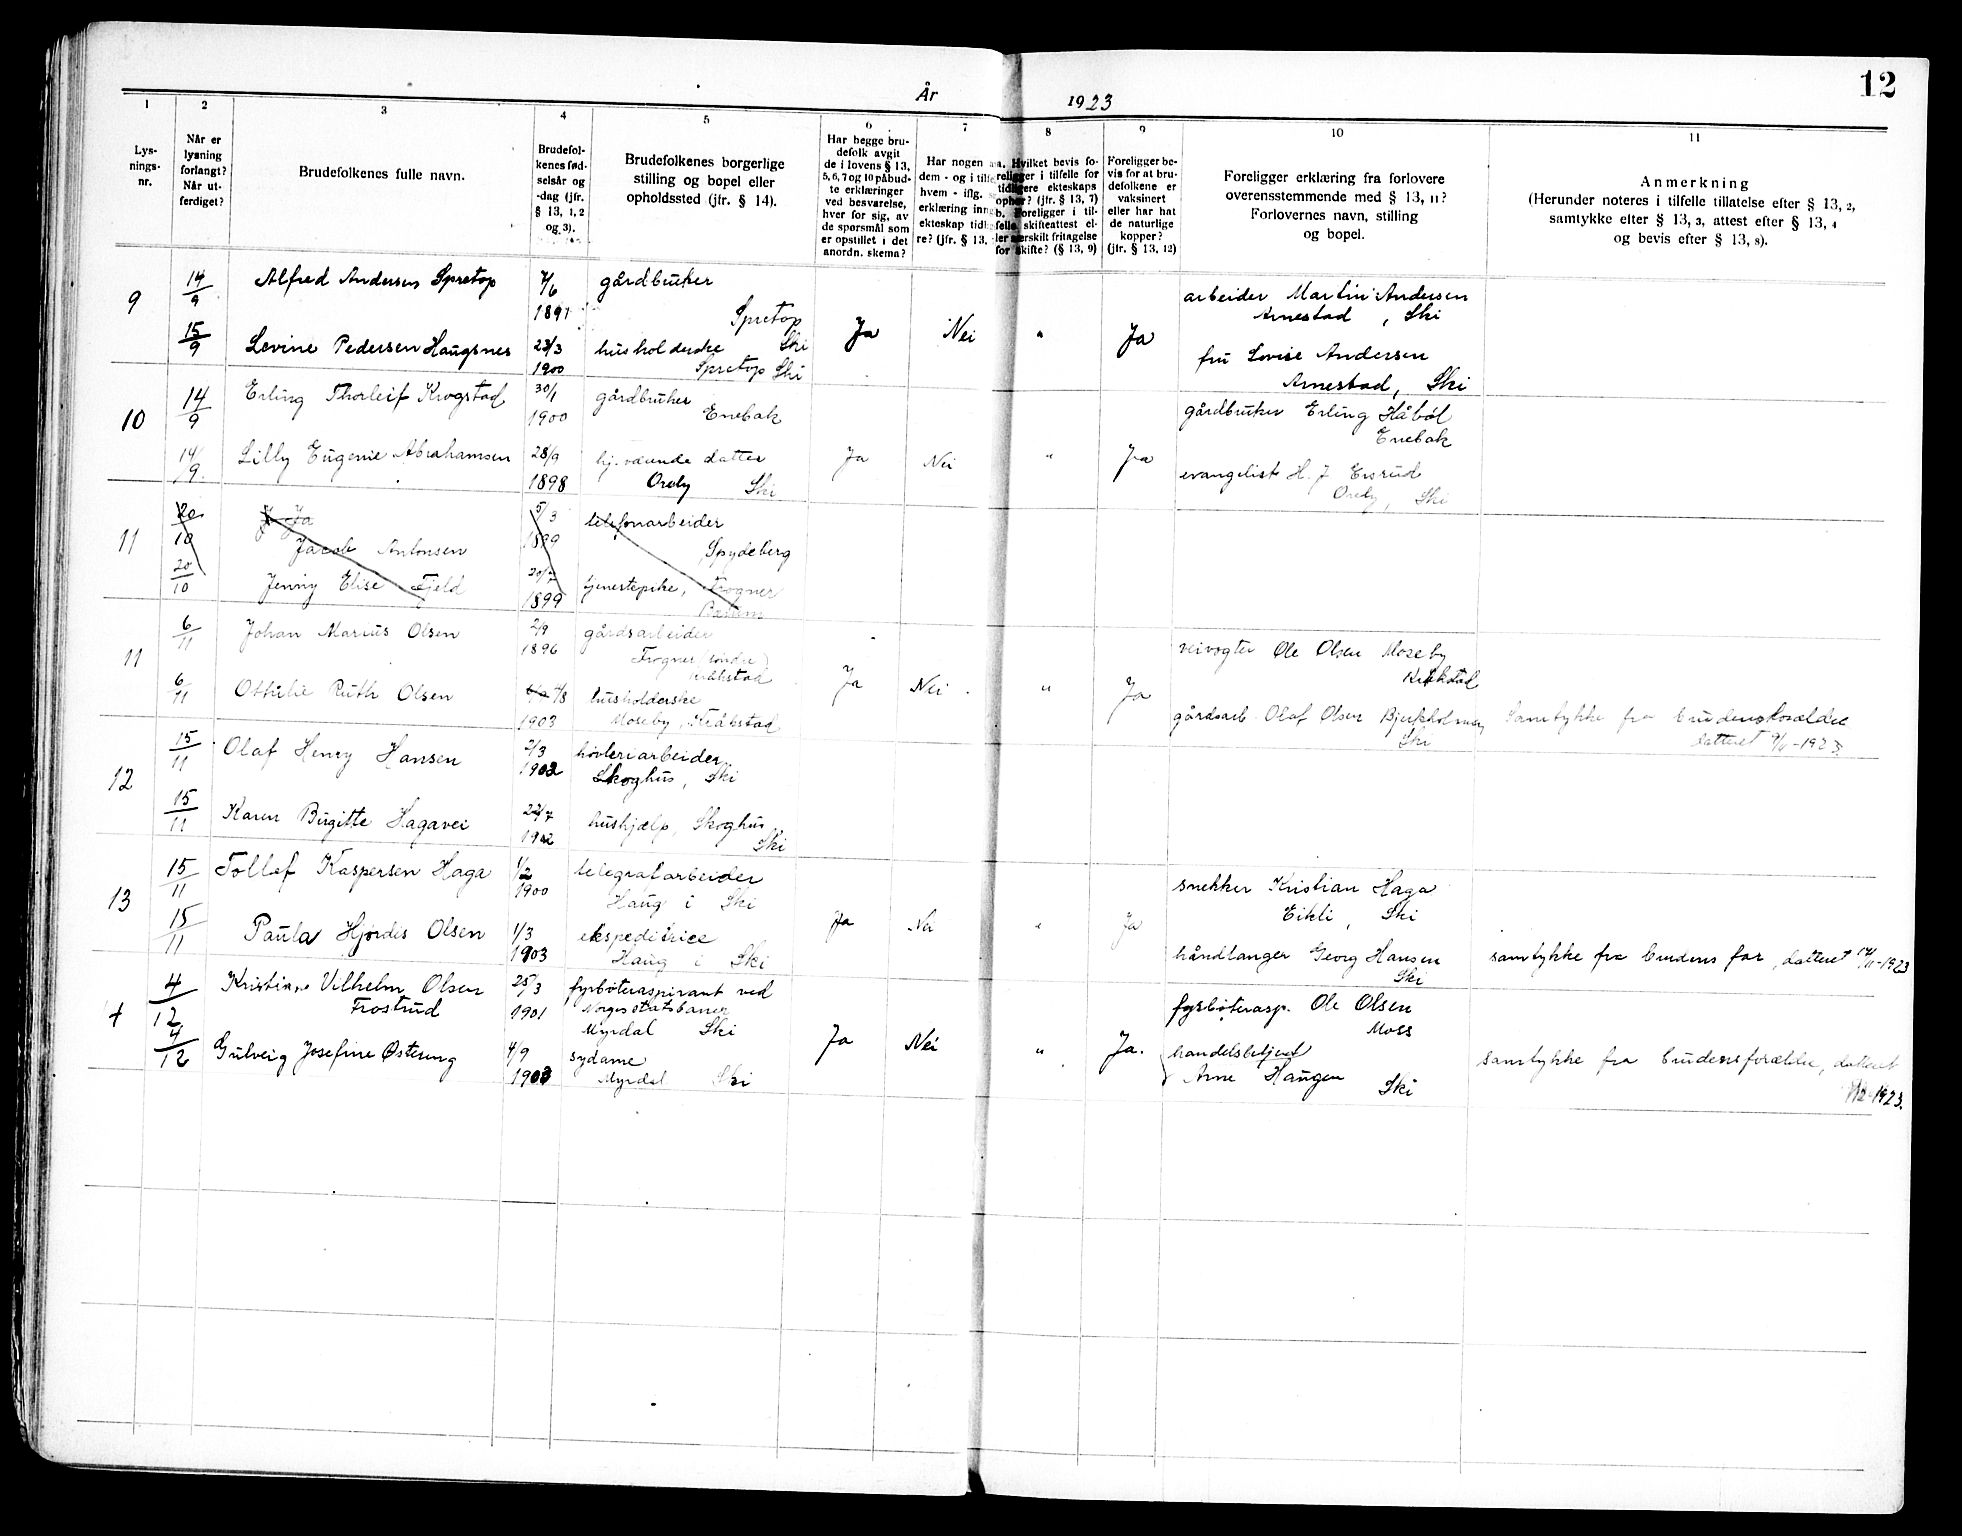 12
År 1923
1 2 3 4 5 6 7 8 9 10 11
Lys-
nings-
nr.
Når er
lysning
forlangt?
Når ut-
ferdiget?
Brudefolkenes fulle navn.
Brudefol-
kenes fød-
selsår og
-dag (jfr.
§ 13, 1, 2
og 3).
Brudefolkenes borgerlige
stilling og bopel eller
opholdssted (jfr. § 14).
Har begge bru-
defolk avgit
de i lovens § 13,
5, 6, 7 og 10 påbud-
te erklæringer
ved besvarelse,
hver for sig, av
de spørsmål som
er opstillet i det
anordn. skema?
Har nogen
dem - og i tilfe
hvem - iflg.
erklæring inng
ekteskap tidli
re? (jfr. § 13,
a. Hvilket bevis fo-
religger i tilfelle for
tidligere ekteskaps
ophør? (jfr. § 13, 7)
b. Foreligger i til-
felle skifteattest el-
ler særskilt fritagelse
for skifte? (§ 13, 9)
Foreligger be-
vis for at bru-
defolkene er
vaksinert
eller har hat
de naturlige
kopper?
(jfr. § 13, 12)
Foreligger erklæring fra forlovere
overensstemmende med § 13, 11?
Forlovernes navn, stilling
og bopel.
Anmerkning
(Herunder noteres i tilfelle tillatelse efter § 13, 2,
samtykke efter § 13, 3, attest efter § 13, 4
og bevis efter § 13, 8).
9
14/9 Alfred Andersen Spretop 7/6 1891 gårdbruker
Spretop
Ski
15/9 Lovine Pedersen Haugsnes 23/3 1900 husholderske
Spretop Ski
Ja Nei " Ja
arbeider Martin Andersen
Arnestad, Ski
fru Lovise Andersen
Arnestad, Ski
10
14/9 Erling Thorleif Krogstad 30/1 1900 gårdbruker
Enebak
14/9 Lilly Eugenie Abrahamsen 28/9 1898 hj. værende datter
Oreby Ski
Ja Nei " Ja
gårdbruker Erling Håbøl
Enebak
evangelist H. J. Ersrud
Oreby, Ski
11
20/10 J Ja
Jacob Antonsen 5/3 1899 telefonarbeider
Spydeberg
20/10 Jenny Elise Fjeld 20/7 1899 tjenestepike, Frogner
Bærum
11
6/11 Johan Marius Olsen 2/9 1896 gårdsarbeider
Frogner (søndre)
Kråkstad
6/11 Ottilie Ruth Olsen 7/8 1903 husholderske
Moseby, Kråkstad
Ja Nei. " Ja
veivogter Ole Olsen Moseby
Kråkstad
gårdsarb. Olaf Olsen Bjerkholmen
Ski
Samtykke fra brudens forældre
datteret 9/11-1923.
12
15/11 Olaf Henry Hansen 2/3 1902 høvleriarbeider
Skoghus, Ski
15/11 Karen Birgitte Hagavei 22/7 1902 hushjælp, Skoghus
Ski
13
15/11 Tollef Kaspersen Haga 1/2 1900 telegrafarbeider
Haug i Ski
15/11 Paula Hjørdis Olsen 1/3 1903 ekspeditrice
Haug i Ski
Ja Nei " Ja
snekker Kristian Haga
Eikli, Ski
håndlanger Georg Hansen
Ski
samtykke fra brudens far, datteret 14/11-1923
4
4/12 Kristian Vilhelm Olsen
Frostrud 25/3 1901 fyrbøteraspirant ved
Norges statsbaner
Myrdal Ski
4/12 Gulveig Josefine Østereng 4/9 1903 sydame
Myrdal Ski
Ja Nei " Ja.
fyrbøterasp. Ole Olsen
Moss
handelsbetjent
Arne Haugen Ski
samtykke fra brudens forældre, datteret
1/12-1923.